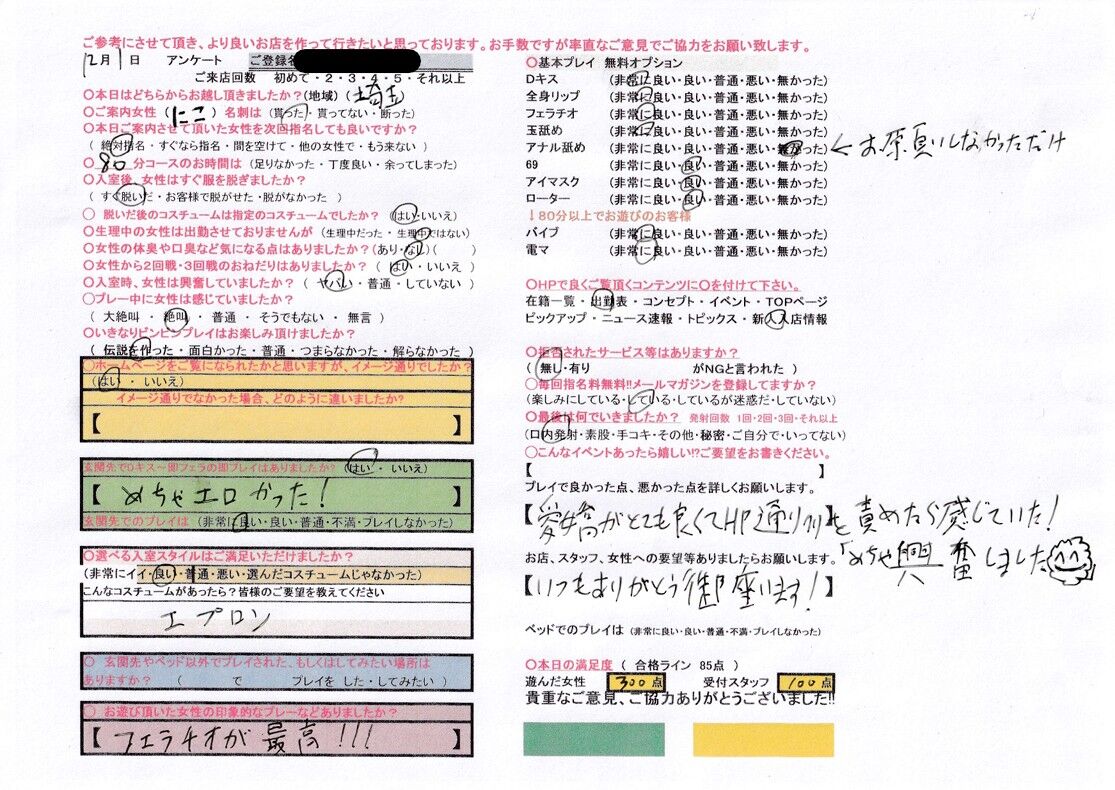 ご参考にさせて頂き、より良いお店を作って行きたいと思っております。お手数ですが率直なご意見でご協力をお願い致します。
12月1日 アンケート ご登録名
ご来店回数 初めて・2・3・4・5・それ以上
〇本日はどちらからお越し頂きましたか?(地域) ( 埼玉
〇ご案内女性 ( にこ ) 名刺は (貰った・貰ってない・断った)
〇本日ご案内させて頂いた女性を次回指名しても良いですか?
( 絶対指名・すぐなら指名・間を空けて・他の女性で・もう来ない )
〇 80 分コースのお時間は (足りなかった・丁度良い・余ってしまった)
〇入室後、女性はすぐ服を脱ぎましたか?
( すぐ脱いだ・お客様で脱がせた・脱がなかった )
〇 脱いだ後のコスチュームは指定のコスチュームでしたか? (はい・いいえ)
〇生理中の女性は出勤させておりませんが (生理中だった・生理中ではない)
〇女性の体臭や口臭など気になる点はありましたか?(あり・なし)( )
〇女性から2回戦・3回戦のおねだりはありましたか? ( はい・いいえ )
〇入室時、女性は興奮していましたか? ( ヤバい・普通・していない )
〇プレー中に女性は感じていましたか?
( 大絶叫 ・ 絶叫 ・ 普通 ・ そうでもない ・ 無言 )
〇いきなりビンビンプレイはお楽しみ頂けましたか?
( 伝説を作った・面白かった・普通・つまらなかった・解らなかった )
〇ホームページをご覧になられたかと思いますが、イメージ通りでしたか?
(はい ・ いいえ)
イメージ通りでなかった場合、どのように違いましたか?
【 】
玄関先でDキス～即フェラの即プレイはありましたか? (はい ・ いいえ)
【 めちゃエロかった! 】
玄関先でのプレイは (非常に良い・良い・普通・不満・プレイしなかった)
〇選べる入室スタイルはご満足いただけましたか?
(非常にイイ・良い・普通・悪い・選んだコスチュームじゃなかった)
こんなコスチュームがあったら?皆様のご要望を教えてください
エプロン
〇 玄関先やベッド以外でプレイされた、もしくはしてみたい場所は
ありますか? ( で プレイを した・してみたい )
〇 お遊び頂いた女性の印象的なプレーなどありましたか?
【 フェラチオが最高!!! 】
〇基本プレイ 無料オプション
Dキス (非常に良い・良い・普通・悪い・無かった)
全身リップ (非常に良い・良い・普通・悪い・無かった)
フェラチオ (非常に良い・良い・普通・悪い・無かった)
玉舐め (非常に良い・良い・普通・悪い・無かった)
アナル舐め (非常に良い・良い・普通・悪い・無かった) ← お願いしなかっただけ
69 (非常に良い・良い・普通・悪い・無かった)
アイマスク (非常に良い・良い・普通・悪い・無かった)
ローター (非常に良い・良い・普通・悪い・無かった)
↓80分以上でお遊びのお客様
バイブ (非常に良い・良い・普通・悪い・無かった)
電マ (非常に良い・良い・普通・悪い・無かった)
〇HPで良くご覧頂くコンテンツに〇を付けて下さい。
在籍一覧・出勤表・コンセプト・イベント・TOPページ
ピックアップ・ニュース速報・トピックス・新人入店情報
〇拒否されたサービス等はありますか?
( 無し・有り がNGと言われた )
〇毎回指名料無料!!メールマガジンを登録してますか?
(楽しみにしている・している・しているが迷惑だ・していない)
〇最後は何でいきましたか? 発射回数 1回・2回・3回・それ以上
(口内発射・素股・手コキ・その他・秘密・ご自分で・いってない)
〇こんなイベントあったら嬉しい!?ご要望をお書きください。
【 】
プレイで良かった点、悪かった点を詳しくお願いします。
【愛嬌がとても良くてHP通り】を責めたら感じていた!
めちゃ興奮しました
お店、スタッフ、女性への要望等ありましたらお願いします。
【いつもありがとう御座います!】
ベッドでのプレイは (非常に良い・良い・普通・不満・プレイしなかった)
〇本日の満足度 ( 合格ライン 85点 )
遊んだ女性 300点 受付スタッフ 100点
貴重なご意見、ご協力ありがとうございました!!